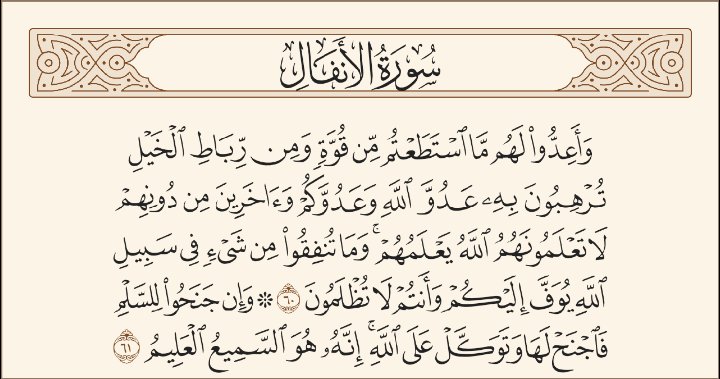 سُورَةُ الأَنفَالِ
وَأَعِدُّوا۟ لَهُم مَّا ٱسْتَطَعْتُم مِّن قُوَّةٍ وَمِن رِّبَاطِ ٱلْخَيْلِ
تُرْهِبُونَ بِهِۦ عَدُوَّ ٱللَّهِ وَعَدُوَّكُمْ وَءَاخَرِينَ مِن دُونِهِمْ
لَا تَعْلَمُونَهُمُ ٱللَّهُ يَعْلَمُهُمْ ۚ وَمَا تُنفِقُوا۟ مِن شَىْءٍ فِى سَبِيلِ
ٱللَّهِ يُوَفَّ إِلَيْكُمْ وَأَنتُمْ لَا تُظْلَمُونَ ٦٠ ۞ وَإِن جَنَحُوا۟ لِلسَّلْمِ
فَٱجْنَحْ لَهَا وَتَوَكَّلْ عَلَى ٱللَّهِ ۚ إِنَّهُۥ هُوَ ٱلسَّمِيعُ ٱلْعَلِيمُ ٦١